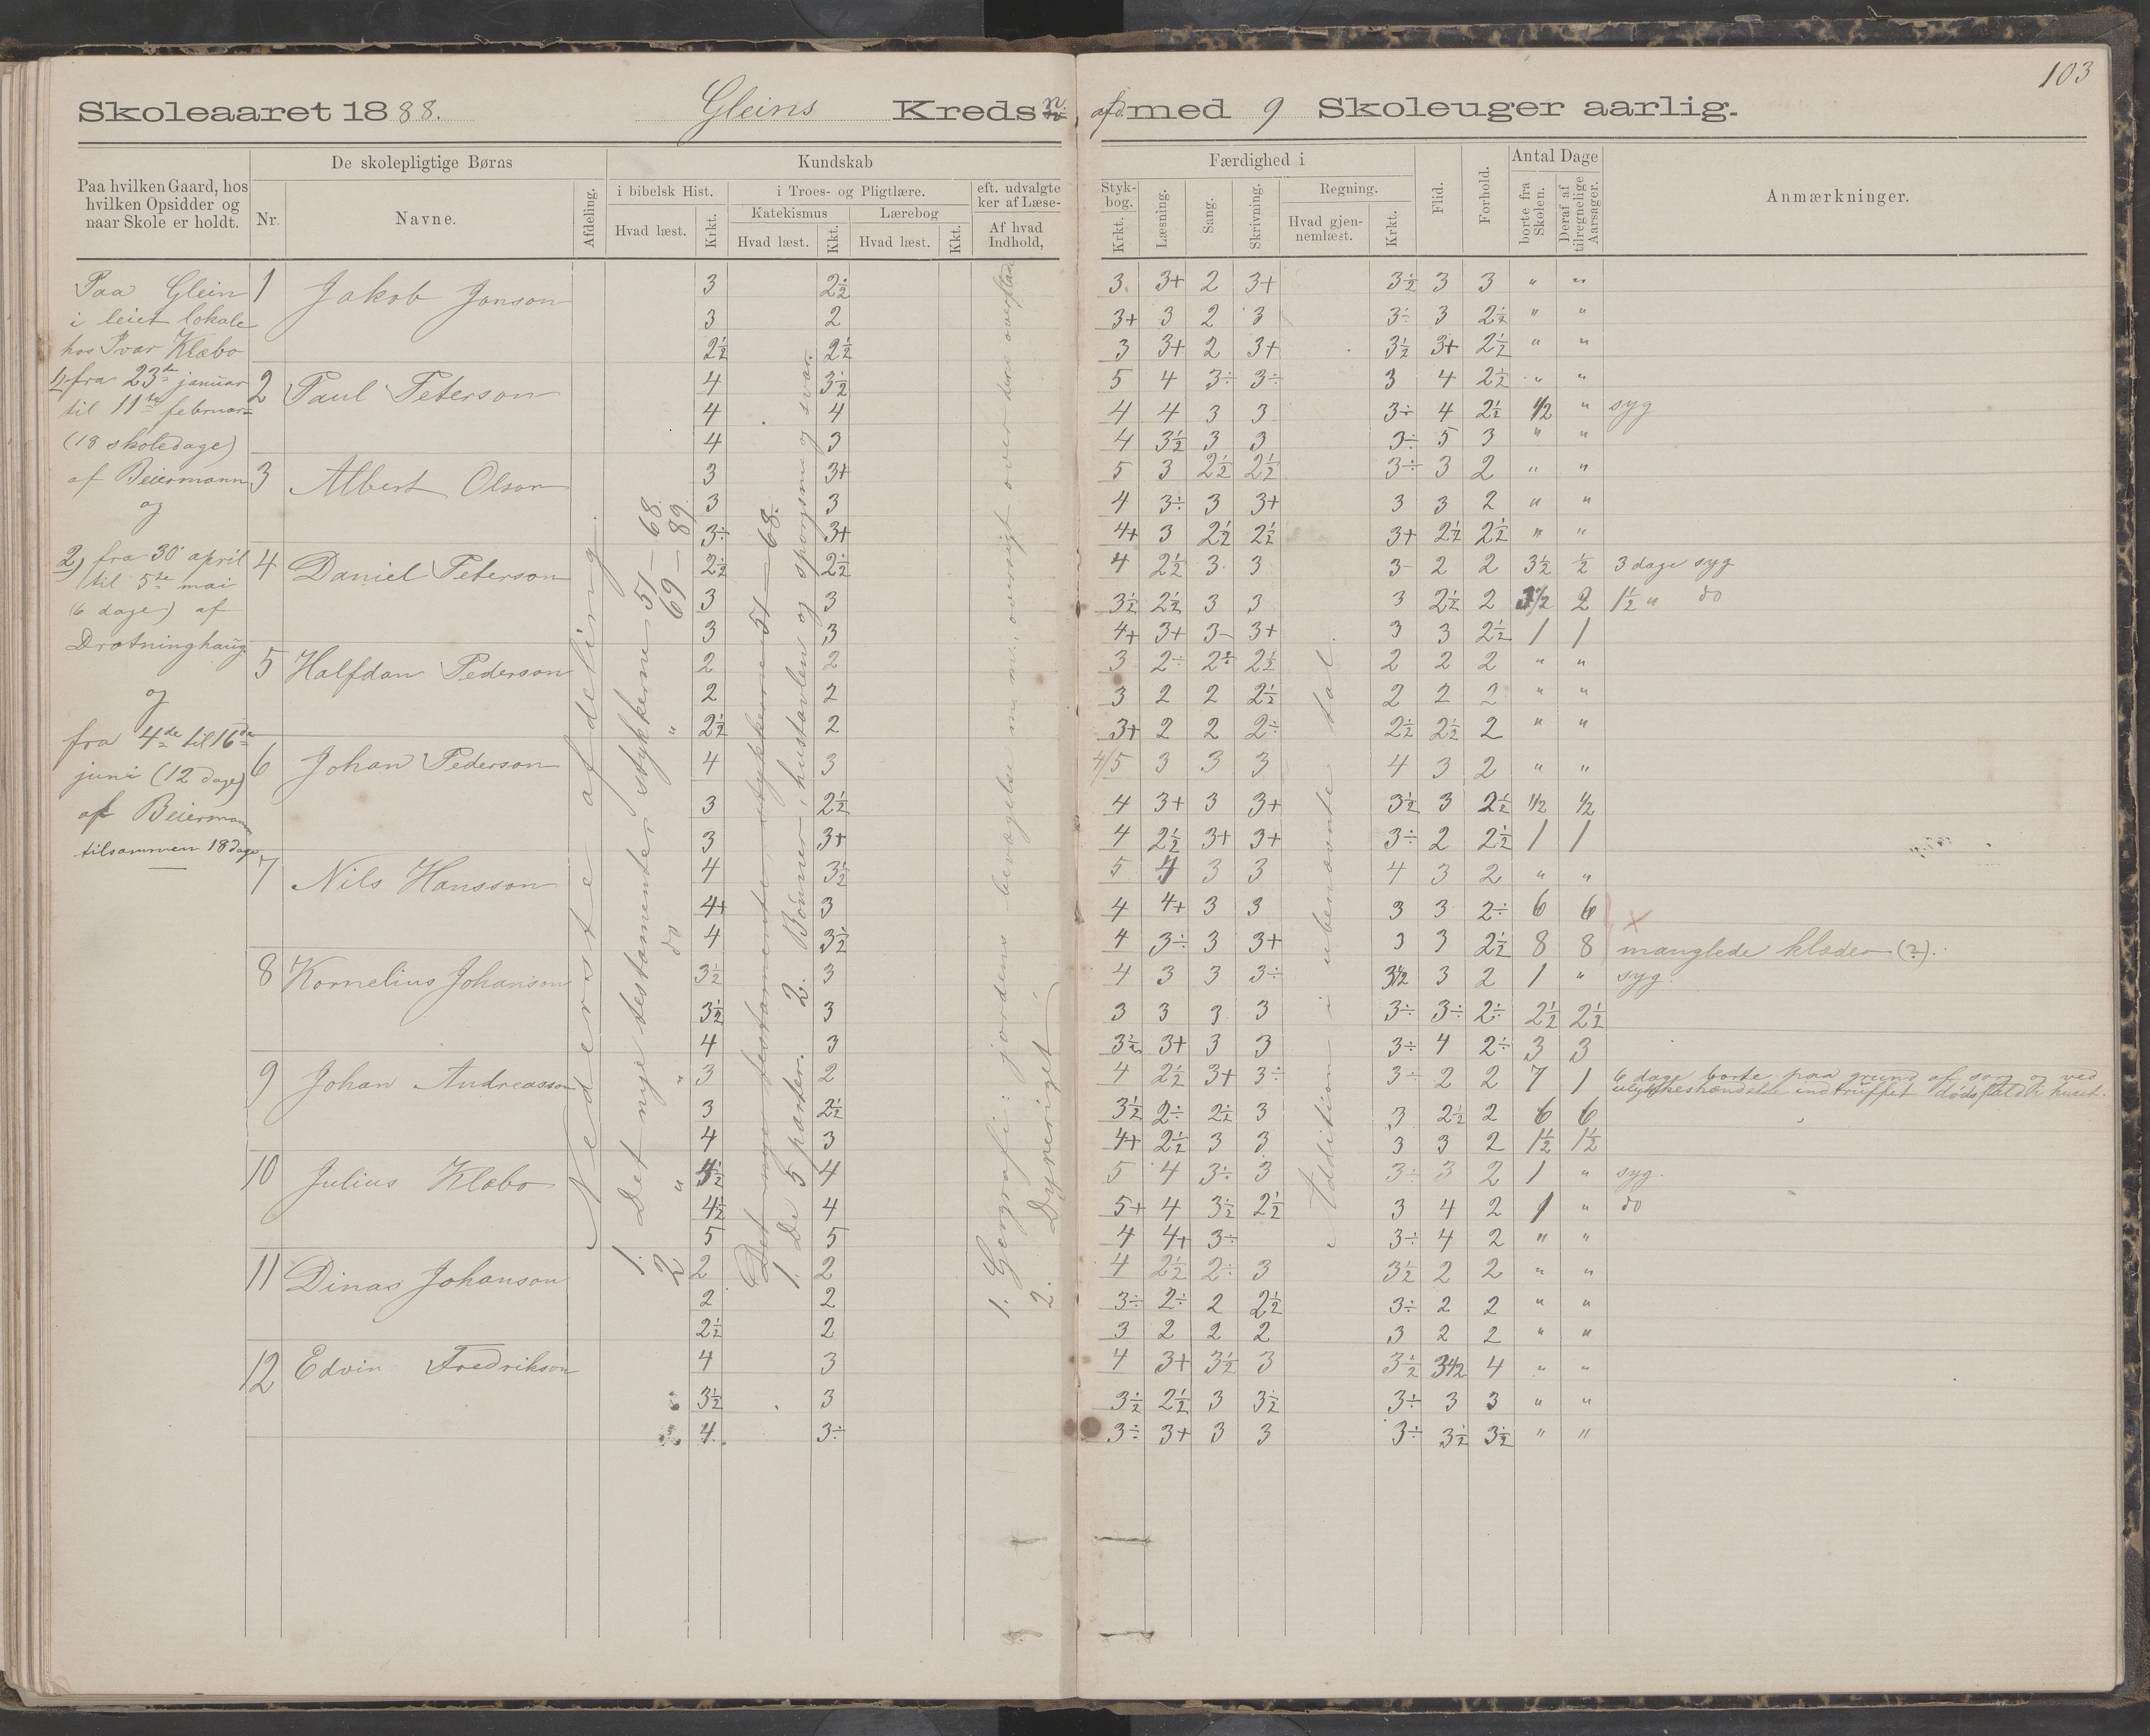 103
Skoleaaret 1888. Gleins Kreds n. afd. med 9 Skoleuger aarlig.
Paa hvilken Gaard, hos hvilken Opsidder og naar Skole er holdt.
De skolepligtige Børns
Nr.
Navne.
Afdeling.
Kundskab
i bibelsk Hist.
Hvad læst.
Krkt.
i Troes- og Pligtlære.
Katekismus
Hvad læst.
Kkt.
Lærebog
Hvad læst.
Kkt.
eft. udvalgte
ker af Læse-
Af hvad Indhold,
Færdighed i
Styk-
bog.
Krkt.
Læsning.
Sang.
Skrivning.
Regning.
Hvad gjen-
nemlæst.
Krkt.
Flid.
Forhold.
Antal Dage
borte fra Skolen.
Deraf af tilregnelige Aarsager.
Anmærkninger.
Paa Glein
i leiet lokale
hos Ivar Klæbo
1) fra 23de januar
til 11te februar
(18 skoledage)
af Beiermann
og
2) fra 30 april
til 5te mai
(6 dage) af
Drotninghaug
og
fra 4de til 16de
juni (12 dage)
af Beiermann
tilsammen 18 dage
Nederste afdeling.
1. Det nye testamente stykkerne 51 – 68.
2 " " do " 69 – 89.
Det nye testamente stykkerne 51 – 68.
1. De 5 parter. 2. Bønner, hustavlen og spørgsm. og svar.
1. Geografi: jordens bevægelse m.m., oversigt over dens overflade
2. Dyreriget
Addition i ubenævnte tal.
1 Jakob Jonson 3 2÷2 3. 3+ 2 3+ 3÷2 3 3 " "
3 2 3+ 3 2 3 3÷ 3 2÷2 " "
2½ 2½ 3 3+ 2 3+ 3½ 3+ 2½ " "
2 Paul Peterson 4 3½ 5 4 3÷ 3÷ 3 4 2½ " "
4 4 4 4 3 3 3÷ 4 2½ ½ " syg
4 3 4 3½ 3 3 3÷ 5 3 " "
3 Albert Olson 3 3+ 5 3 2½ 2½ 3÷ 3 2 " "
3 3 4 3÷ 3 3+ 3 3 2 " "
3÷ 3+ 4+ 3 2½ 2½ 3+ 2½ 2½ " "
4 Daniel Peterson 2½ 2½ 4 2½ 3 3 3 2 2 3½ ½ 3 dage syg
3 3 3½ 2½ 3 3 3 2½ 2 3½ 2 1½ " do
3 3 4+ 3+ 3- 3+ 3 3 2½ 1 1
5 Halfdan Pederson 2 2 3 2÷ 2÷ 2½ 2 2 2 " "
2 2 3 2 2 2½ 2 2 2 " "
2½ 2 3+ 2 2 2÷ 2½ 2½ 2 " "
6 Johan Pederson 4 3 4/5 3 3 3 4 3 2 " "
3 2½ 4 3+ 3 3+ 3½ 3 2½ ½ ½
3 3+ 4 2½ 3+ 3+ 3÷ 2 2½ 1 1
7 Nils Hansson 4 3½ 5 4 3 3 4 3 2 " "
4+ 3 4 4+ 3 3 3 3 2÷ 6 6
4 3½ 4 3÷ 3 3+ 3 3 2½ 8 8 manglede klæder (?).
8 Kornelius Johanson 3½ 3 4 3 3 3÷ 3½ 3 2 1 " syg.
3½ 3 3 3 3 3 3÷ 3÷ 2÷ 2½ 2½
4 3 3½ 3+ 3 3 3÷ 4 2÷ 3 3
9 Johan Andreasson 3 2 4 2½ 3+ 3÷ 3÷ 2 2 7 1 6 dage borte paa grund af sorg og ved
ulykkeshændelse indtruffet dødsfald i huset.
3 2½ 3½ 2÷ 2½ 3 3 2½ 2 6 6
4 3 4+ 2½ 3 3 3 3 2 1½ 1½
10 Julius Klæbo 4½ 4 5 4 3÷ 3 3÷ 3 2 1 " syg.
4½ 4 5+ 4 3½ 2½ 3 4 2 1 " do
5 5 4 4+ 3÷ 3÷ 4 2 " "
11 Dinas Johanson 2 2 4 2½ 2÷ 3 3½ 2 2 " "
2 2 3÷ 2÷ 2 2½ 3÷ 2 2 " "
2½ 2 3 2 2 2 3 2 2 " "
12 Edvin Fredrikson 4 3 4 3+ 3½ 3 3½ 3½ 4 " "
3½ 3 3½ 2½ 3 3½ 3÷ 3 3 " "
4 3÷ 3÷ 3+ 3 3 3÷ 3½ 3½ " "